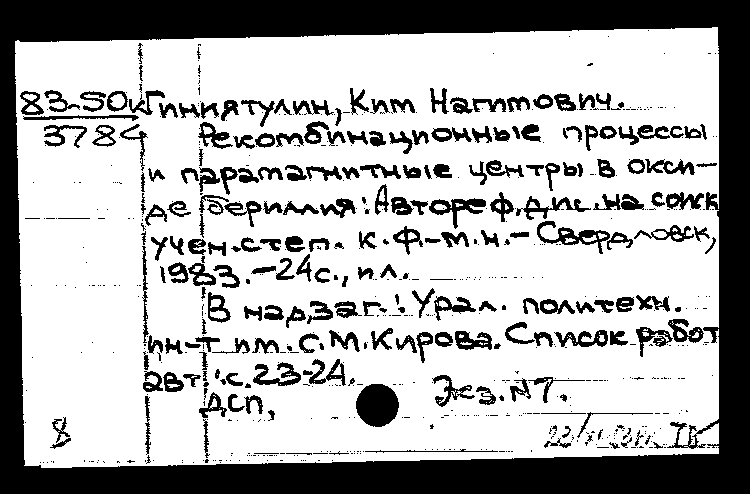 83-50к Гиниятулин, Ким Нагимович.
3784 Рекомбинационные процессы
и парамагнитные центры в окси-
де бериллия: Автореф. дис. на соиск
учен. степ. к. ф-м.н. - Свердловск,
1983. - 24 с., ил.
В надзаг.: Урал. политехн.
ин-т им. С.М. Кирова. Список работ
авт.: с. 23-24.
ДСП. Экз. N 7.
8